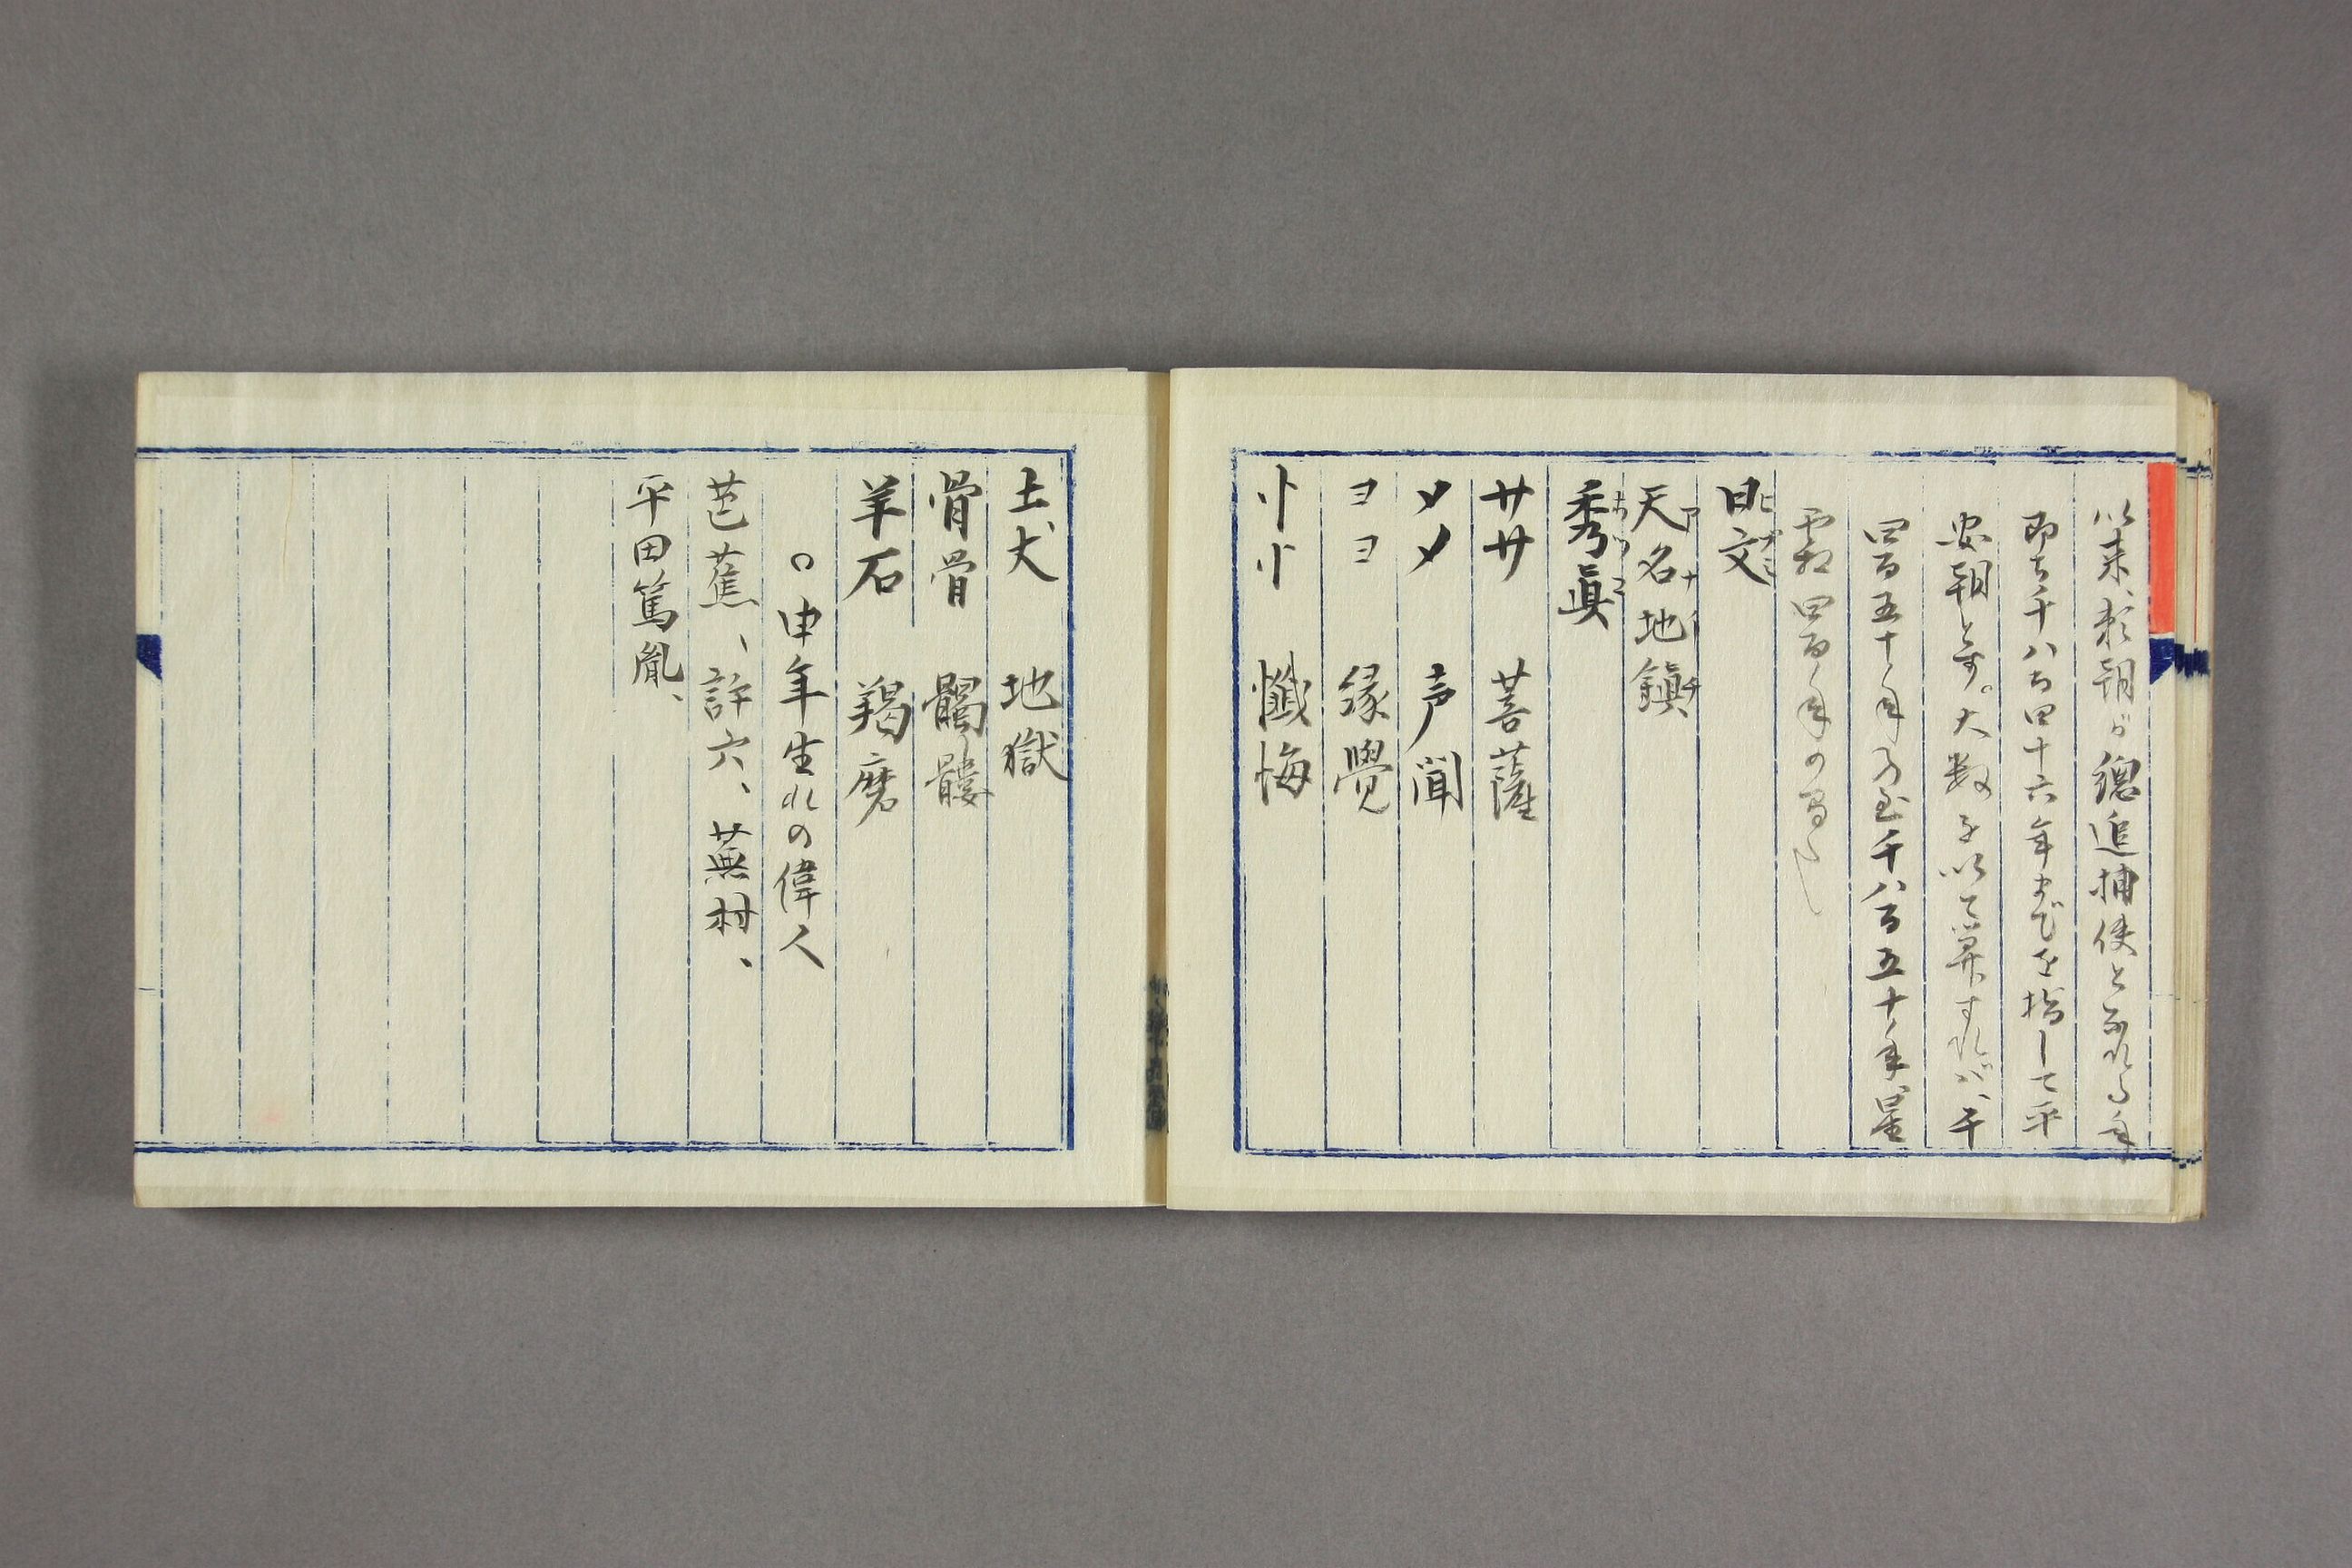 以来、頼朝が總追捕使となれる年
即ち千八百四十六年までを指して平
安朝と号す。大数を以て算すれば、千
四百五十年乃至千八百五十年、星
霜四百年の間
日文 ヒブミ
天名地鎮 アナイチ
秀眞 ホツマ
サササ 菩薩
メメ 声聞
ヨヨ 縁覺
忄忄 懺悔
土犬 地獄
骨骨 髑髏
羊石 羯磨
○申年生れの偉人
芭蕉、許六、蕪村、
平田篤胤、